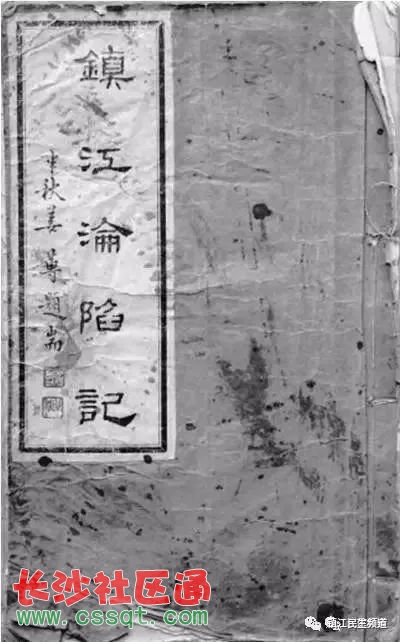 鎮江淪陷記
中秋姜題耑
长沙社区通
www.cssqt.com
镇江民生频道